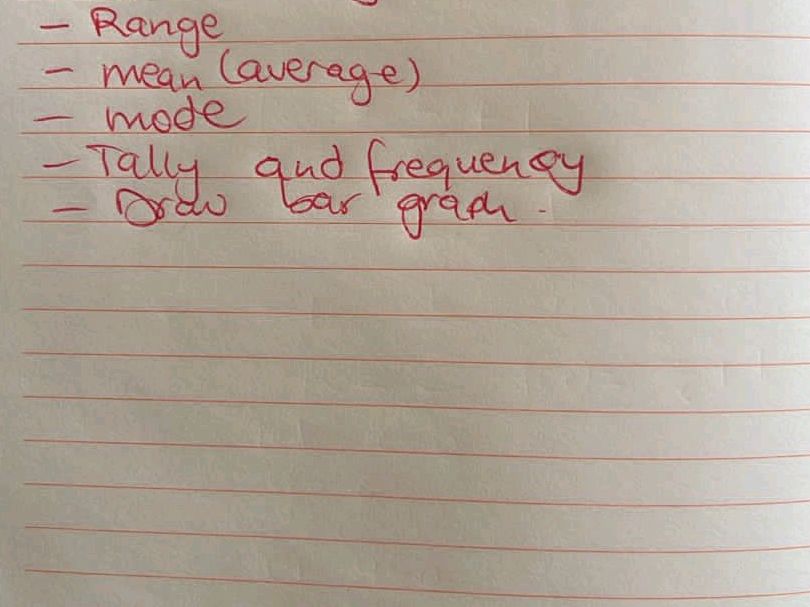 - Range
- mean (average)
- mode
- Tally and frequency
- Draw bar graph.